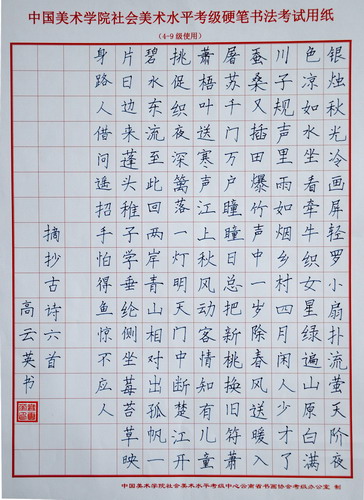 中国美术学院社会美术水平考级硬笔书法考试用纸
(4-9级使用)
银烛秋光冷画屏轻罗小扇扑流萤天阶夜
色凉如水坐看牵牛织女星绿遍山原白满
川子规声里雨如烟乡村四月闲人少才了
蚕桑又插田爆竹声中一岁除春风送暖入
屠苏千门万户瞳瞳日总把新桃换旧符萧
萧梧叶送寒声江上秋风动客情知有儿童
挑促织夜深篱落一灯明天门中断楚江开
碧水东流至此回两岸青山相对出孤帆一
片日边来蓬头稚子学垂纶侧坐莓苔草映
身路人借问遥招手怕得鱼惊不应人
摘抄古诗六首
高云英书
中国美术学院社会美术水平考级中心云南省书画协会考级办公室 制